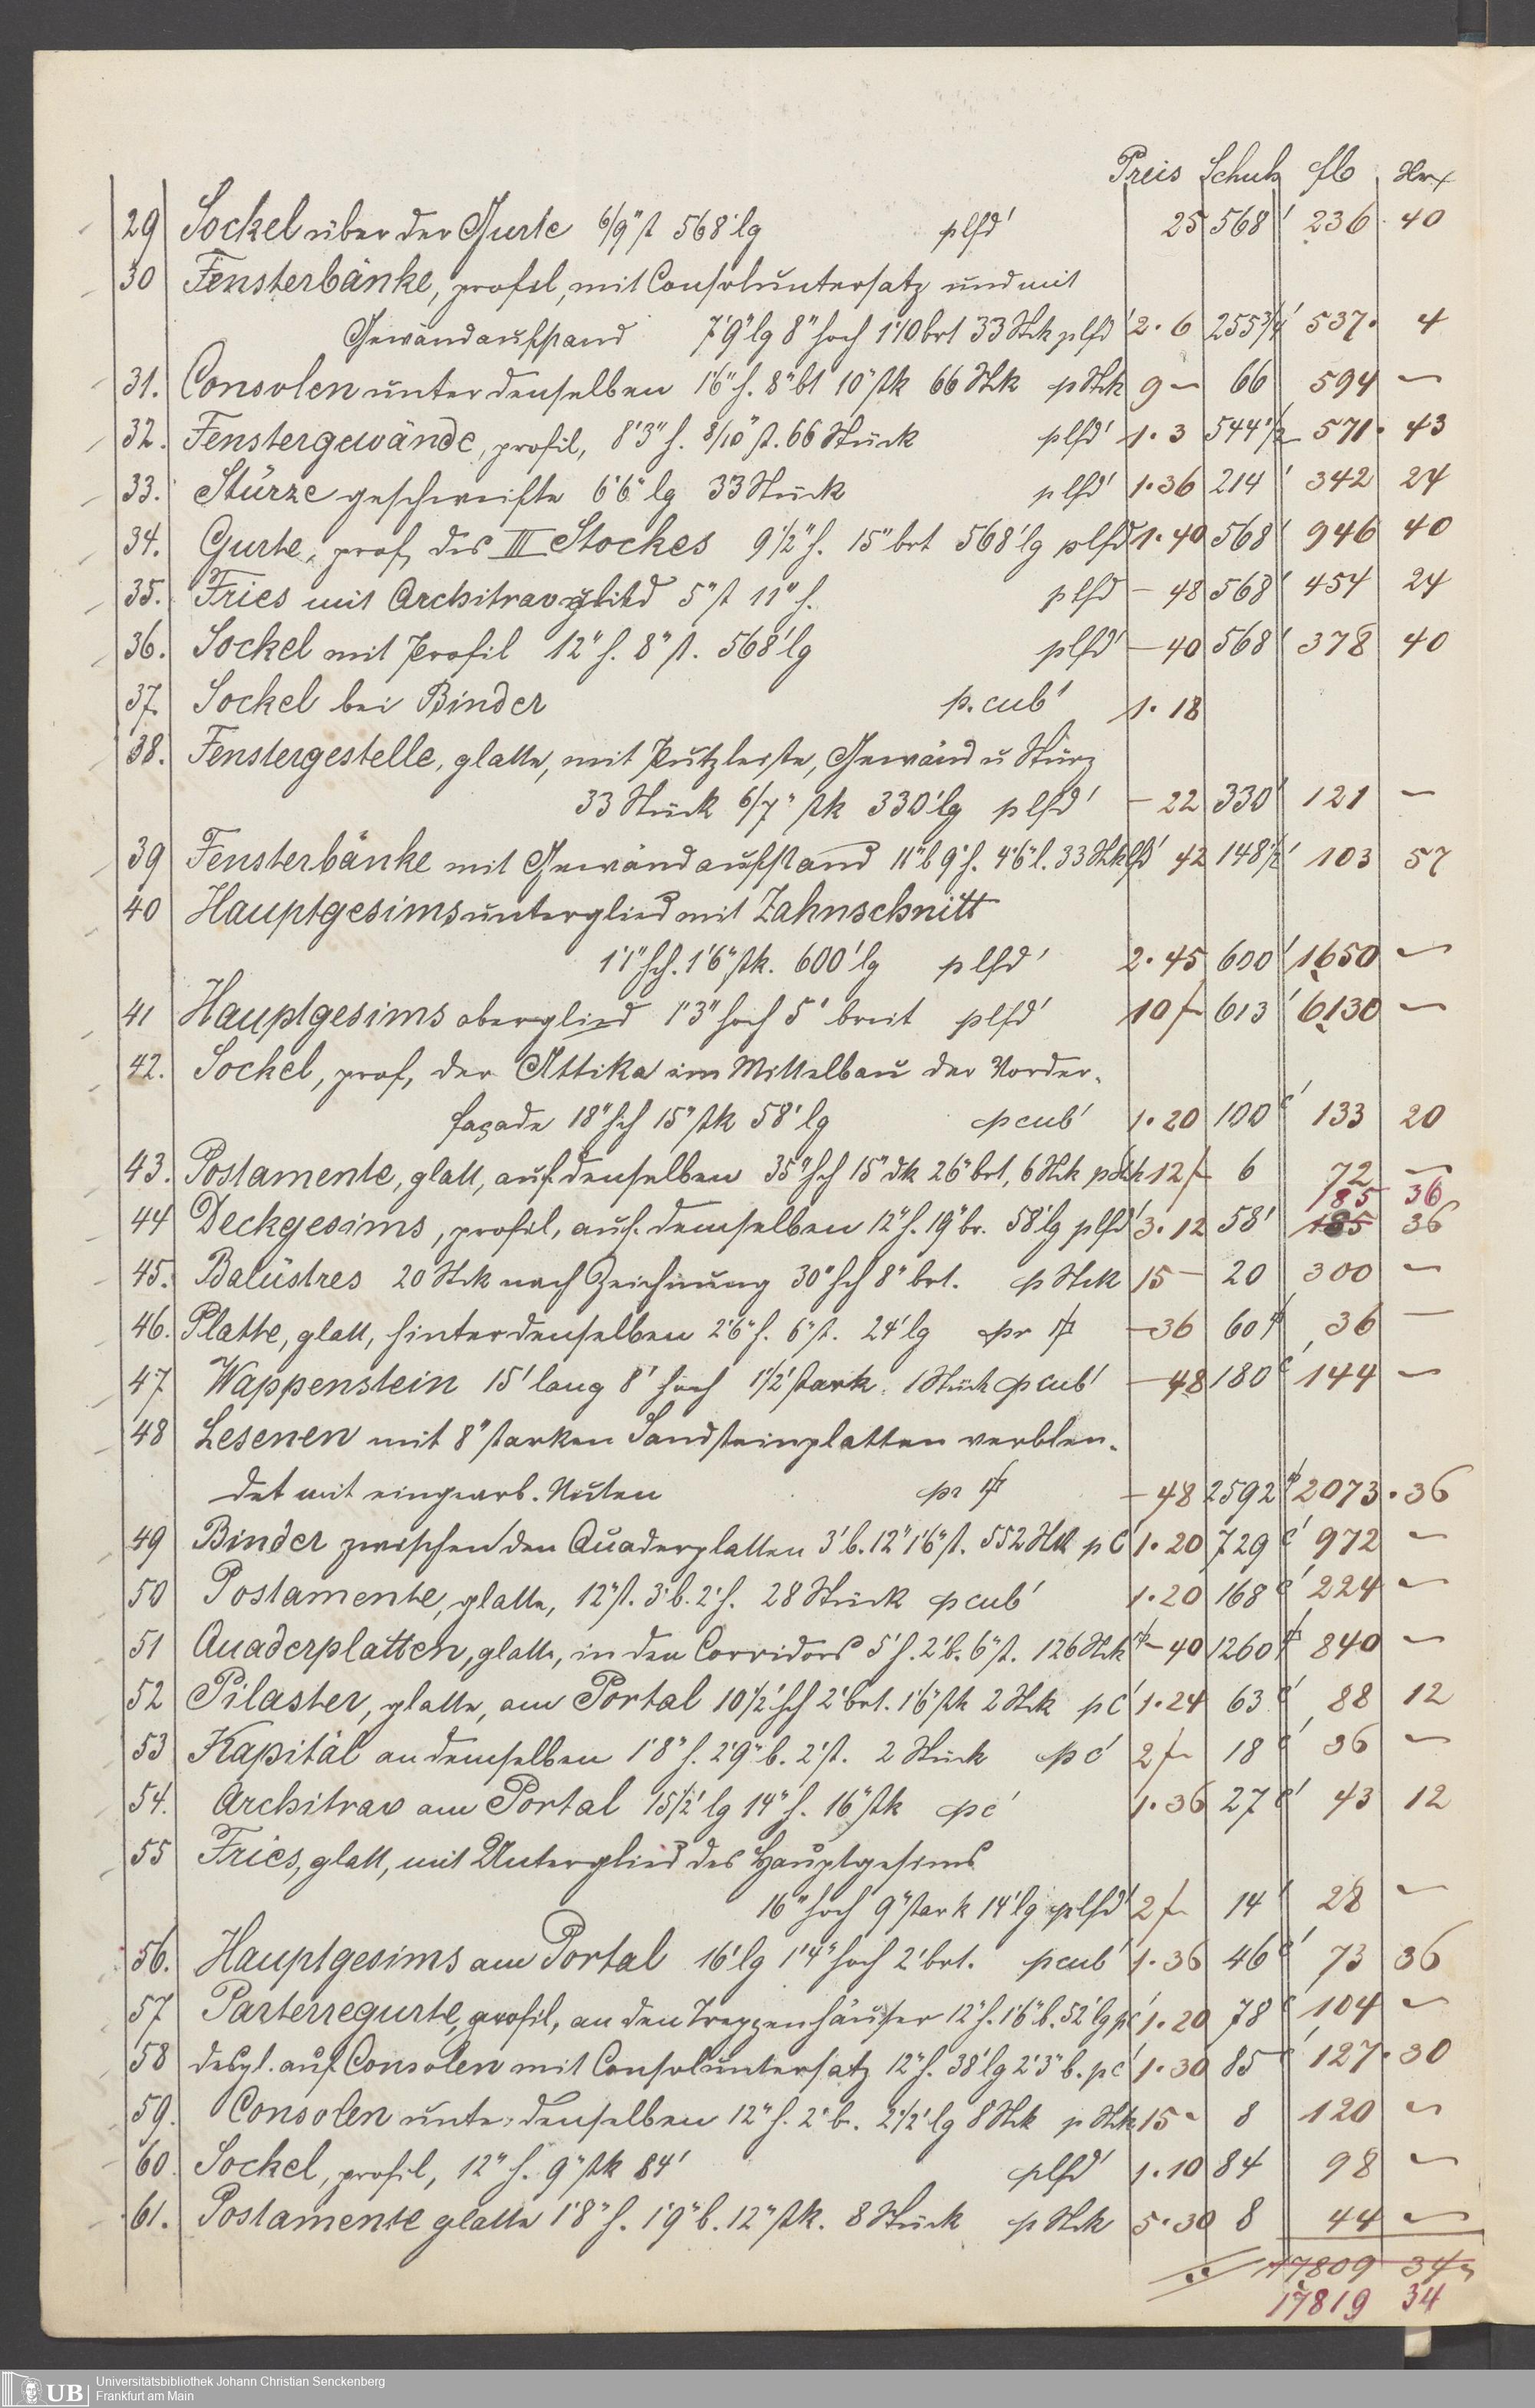 Preis Schuh fl Krz
29 Sockel über der Gurte 6/9" st 568' lg plfd' 25 568' 236. 40
30 Fensterbänke, profil, mit Consoluntersatz und mit
Gewändaufstand 7'9" lg 8" hoch 1'10 brt 33 Stck plfd' 2.6 255 3/4' 537. 4
31. Consolen unter denselben 1'6" h. 8" bt 10" stk 66 Stk p Stk 9 – 66 594 –
32. Fenstergewände, profil, 8'3" h. 8/10" st. 66 Stück plfd' 1.3 544 1/2 571. 43
33. Stürze geschweifte 6'6" lg 33 Stück plfd' 1.36 214' 342 24
34. Gurte, prof, des III Stockes 9 1/2" h. 15" brt 568' lg plfd 1.40 568' 946 40
35. Fries mit Architravglied 5" st 11" h. plfd – 48 568' 454 24
36. Sockel mit Profil 12" h. 8" st. 568' lg plfd' – 40 568' 378 40
37. Sockel bei Binder p. cub' 1.18
38. Fenstergestelle, glatte, mit Putzleiste, Gewänd u Stürz
33 Stück 6/7" stk 330' lg plfd' – 22 330' 121 –
39 Fensterbänke mit Gewändaufstand 11" b 9" h. 4'6" l. 33 Stk lfd' 42 148 1/2' 103 57
40 Hauptgesimsunterglied mit Zahnschnitt
1'1" hch. 1'6" stk. 600' lg plfd' 2.45 600' 1650 –
41 Hauptgesims oberglied 1'3" hoch 5' breit plfd' 10 f 613' 6130 –
42. Sockel, prof, der Attika im Mittelbau der Vorder-
façade 18" hch 15" stk 58' lg p cub' 1.20 100 c' 133 20
43. Postamente, glatt, auf denselben 35" hch 15" dk 26" brt, 6 Stk p Stk 12 f 6 72 –
185 36
44 Deckgesims, profil, auf demselben 12" h. 19" br. 58' lg plfd' 3.12 58' 185 36
45. Balüstres 20 Stck nach Zeichnung 30" hch 8" brt. p Stck 15 – 20 300 –
46. Platte, glatt, hinter denselben 2'6" h. 6" st. 24' lg pr □' – 36 60 □' 36 –
47 Wappenstein 15' lang 8' hoch 1 1/2' stark. 1 Stück p cub' – 48 180 c' 144 –
48 Lesenen mit 8" starken Sandsteinplatten verblen-
det mit eingearb. Nuten pr □' – 48 2592 □' 2073. 36
49 Binder zwischen den Quaderplatten 3' b. 12" 1'6" st. 552 Stk p c' 1.20 729 c' 972 –
50 Postamente, glatte, 12" st. 3' b. 2' h. 28 Stück p cub' 1.20 168 c' 224 –
51 Quaderplatten, glatte, in den Corridors 5' h. 2' b. 6" st. 126 Stck □' – 40 1260 □' 840 –
52 Pilaster, glatte, am Portal 10 1/2' hch 2' brt. 1'6" stk 2 Stk p c' 1.24 63 c' 88 12
53 Kapitäl an demselben 1'8" h. 2'9" b. 2' st. 2 Stück p c' 2 f 18 c' 36 –
54. Architrav am Portal 15 1/2' lg 14" h. 16" stk p c' 1.36 27 c' 43 12
55 Fries, glatt, mit Unterglied des Hauptgesims
16" hoch 9" stark 14' lg plfd' 2 f 14' 28 –
56. Hauptgesims am Portal 16' lg 1'4" hoch 2' brt. p cub' 1.36 46 c' 73 36
57 Parterregurte, profil, an den Treppenhäuser 12" h. 1'6" b. 52' lg p c' 1.20 78 c' 104 –
58 desgl. auf Consolen mit Consoluntersatz 12" h. 38' lg 2'3" b. p c' 1.30 85 c' 127. 30
59. Consolen unter denselben 12" h. 2' b. 2 1/2' lg 8 Stk p Stk 15 – 8 120 –
60. Sockel, profil, 12" h. 9" stk 84' plfd' 1.10 84 98 –
61. Postamente glatte 1'8" h. 1'9" b. 12" stk. 8 Stück p Stck 5.30 8 44 –
17809 34
17819 34
UB Universitätsbibliothek Johann Christian Senckenberg
Frankfurt am Main